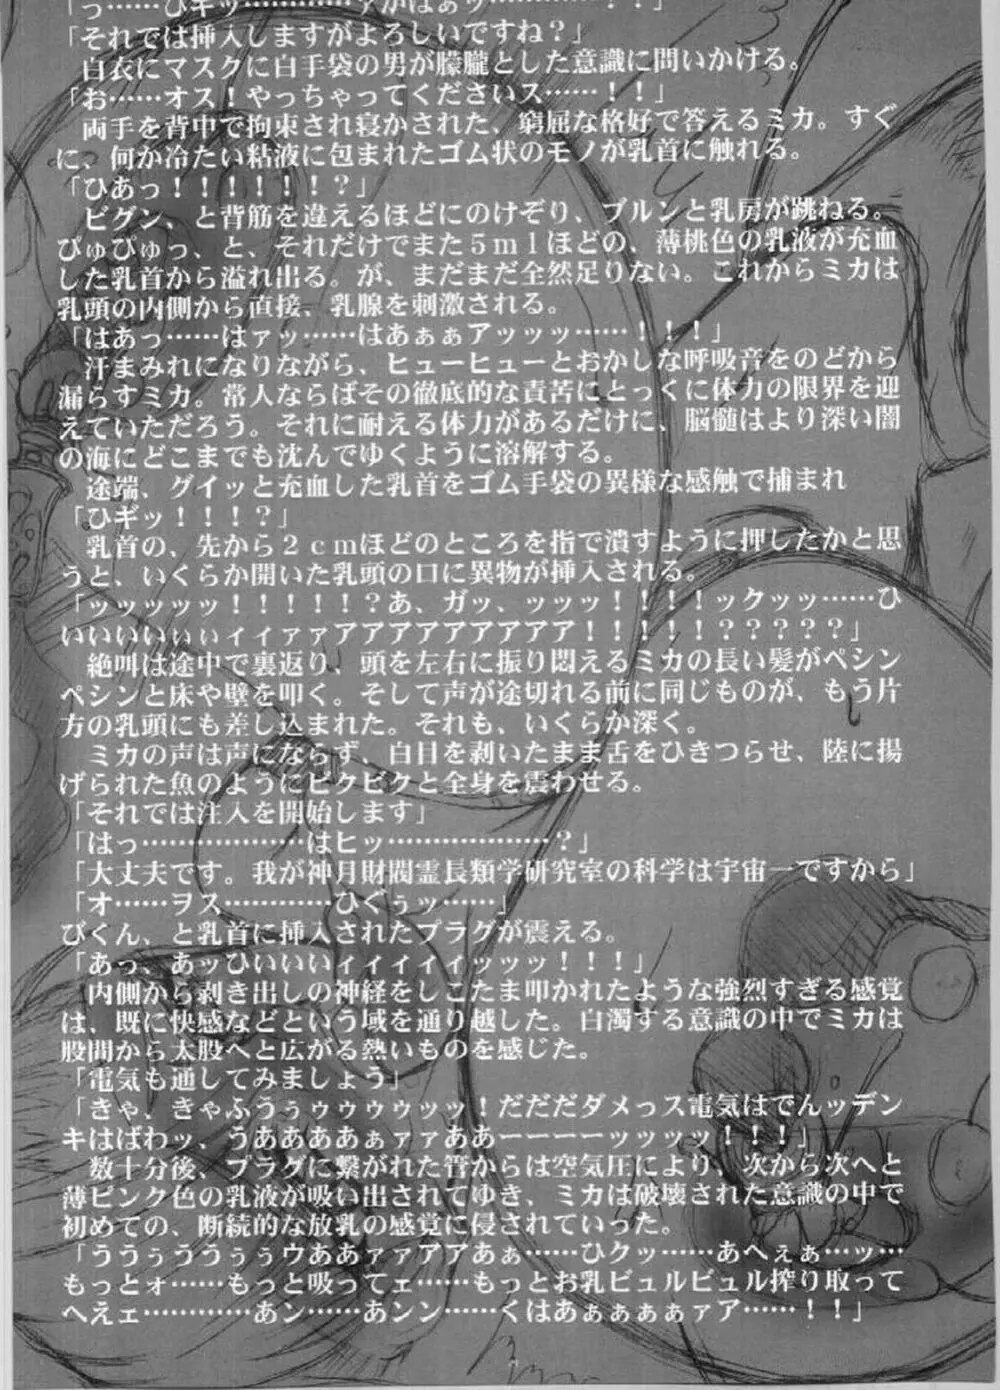 「っ……ひギッ…………ァがはぁッ…………！！」
「それでは挿入しますがよろしいですね？」
白衣にマスクに白手袋の男が朦朧とした意識に問いかける。
「お……オス！やっちゃってくださいス……！！」
両手を背中で拘束され寝かされた、窮屈な格好で答えるミカ。すぐ
に、何か冷たい粘液に包まれたゴム状のモノが乳首に触れる。
「ひあっ！！！！！！！？」
ビグン、と背筋を違えるほどにのけぞり、ブルンと乳房が跳ねる。
ぴゅぴゅっ、と、それだけでまた５ｍｌほどの、薄桃色の乳液が充血
した乳首から溢れ出る。が、まだまだ全然足りない。これからミカは
乳頭の内側から直接、乳腺を刺激される。
「はあっ……はァッ……はあぁぁアッッッ……！！！」
汗まみれになりながら、ヒューヒューとおかしな呼吸音をのどから
漏らすミカ。常人ならばその徹底的な責苦にとっくに体力の限界を迎
えていただろう。それに耐える体力があるだけに、脳髄はより深い闇
の海にどこまでも沈んでゆくように溶解する。
途端、グイッと充血した乳首をゴム手袋の異様な感触で捕まれ
「ひギッ！！！？」
乳首の、先から２ｃｍほどのところを指で潰すように押したかと思
うと、いくらか開いた乳頭の口に異物が挿入される。
「ッッッッッ！！！！！？あ、ガッ、ッッッ！！！！ックッッ……ひ
いいいいいぃぃィィァァアアアアアアアアア！！！！！？？？？？」
絶叫は途中で裏返り、頭を左右に振り悶えるミカの長い髪がペシン
ペシンと床や壁を叩く。そして声が途切れる前に同じものが、もう片
方の乳頭にも差し込まれた。それも、いくらか深く。
ミカの声は声にならず、白目を剥いたまま舌をひきつらせ、陸に揚
げられた魚のようにビクビクと全身を震わせる。
「それでは注入を開始します」
「はっ………………はヒッ………………？」
「大丈夫です。我が神月財閥霊長類学研究室の科学は宇宙一ですから」
「オ……ヲス…………ひぐぅッ……」
びくん、と乳首に挿入されたプラグが震える。
「あっ、あッひいいいィィィィィッッッ！！！」
内側から剥き出しの神経をしこたま叩かれたような強烈すぎる感覚
は、既に快感などという域を通り越した。白濁する意識の中でミカは
股間から太股へと広がる熱いものを感じた。
「電気も通してみましょう」
「きゃ、きゃふうぅゥゥゥゥッッ！だだだダメっス電気はでんッデン
キはばわッ、うああああぁァァああーーーーッッッッ！！！」
数十分後、プラグに繋がれた管からは空気圧により、次から次へと
薄ピンク色の乳液が吸い出されてゆき、ミカは破壊された意識の中で
初めての、断続的な放乳の感覚に侵されていった。
「ううぅううぅぅウああァァアアあぁ……ひクッ……あへぇぁ…ッ…
もっとォ……もっと吸ってェ……もっとお乳ビュルビュル搾り取って
へえェ…………あン……あンン……くはあぁぁぁぁァア……！！」